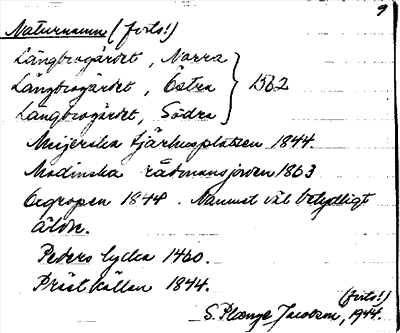 9
Naturnamn (forts!)
Långbrogärdet, Norra
Långbrogärdet, Östra } 1562
Långbrogärdet, Södra
Meijerska tjärhusplatsen 1844.
Modinska rådmansjorden 1863
Orgropen 1844. Namnet väl betydligt
äldre.
Peders lycka 1460.
Präst källan 1844.
(forts!)
S. Plænge Jacobson, 1944.